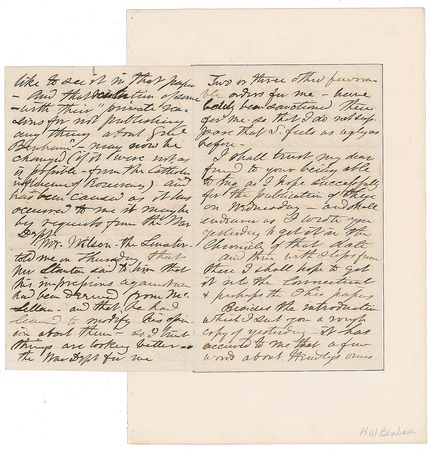 like to see it in that paper
- And that
- with their "private rea-
sons for not publishing
any thing about Genl
Benham" - may now be
changed (if it were not as
is possible - from the Catholic
influence of Rosecrans) and
has been caused as it has
occurred to me it might be
by requests from the War
Dept
Mr. Wilson - the Senator -
told me on Thursday that
Mr Stanton said to him that
his impressions against me
had been derived from Mc-
Lellan - and that he had
learned to modify his opin
ion about them so I trust
things are looking better - in
the War Dept for me
Two or three other favora-
ble orders for me - have
been sanctioned there
for me. so that I do not sup-
pose that I feel as ugly as
before -
I shall trust my dear
friend to your being able
to me, as I hope successfully
for the publication of these
on Wednesday - and shall
endeavor as I wrote you
yesterday to get it in the
Chronicle of that date
and then with slips from
there I shall hope to get
it into the Connecticut
& perhaps the Ohio papers
Besides the introduction
which I sent you a rough
copy of yesterday - it has
occurred to me that a few
words about ones
HW Benham